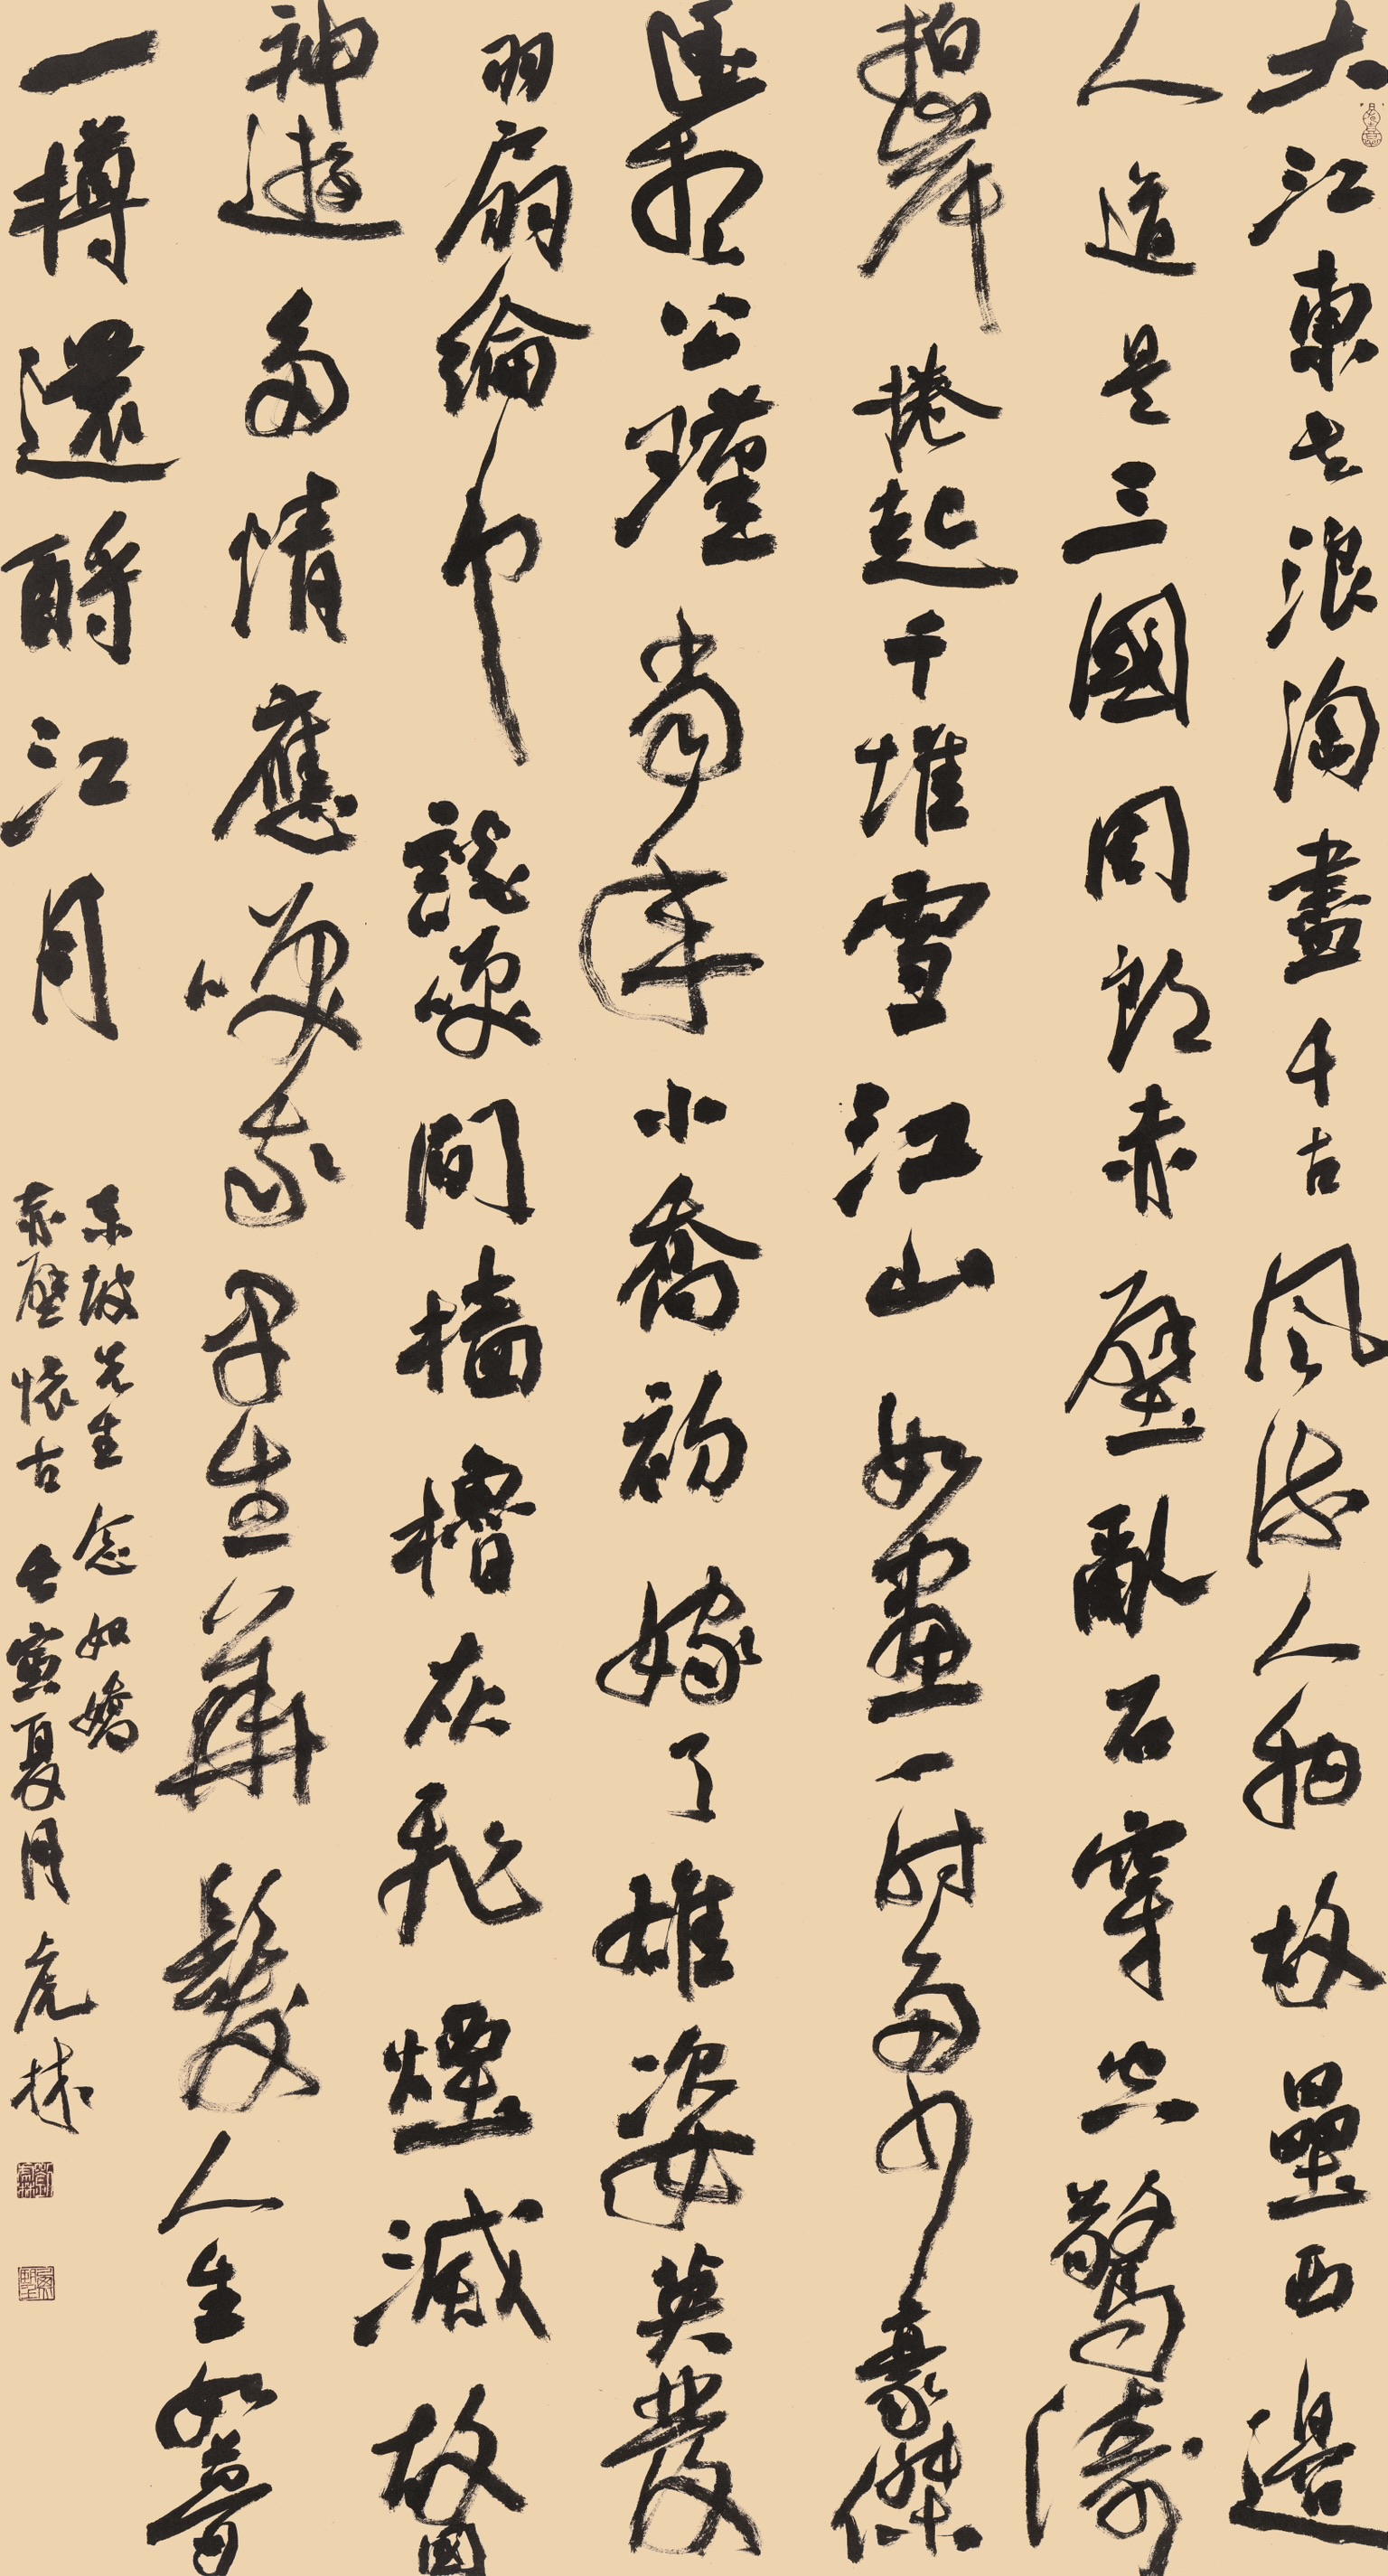 大江東去浪淘盡千古風流人物故壘西邊
人道是三國周郎赤壁亂石穿空驚濤
拍岸捲起千堆雪江山如畫一時多少豪傑
遙想公瑾當年小喬初嫁了雄姿英發
羽扇綸巾談笑間檣櫓灰飛煙滅故國
神遊多情應笑我早生華髮人生如夢
一樽還酹江月
東坡先生念奴嬌
赤壁懷古壬寅夏月虎林